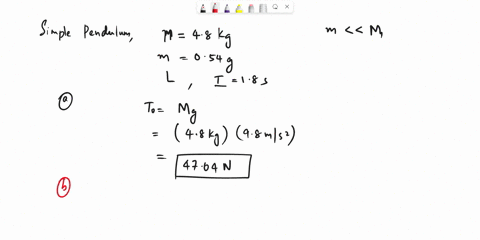 Simple Pendulum, M = 4.8 kg m << M,
m = 0.54 g
L , T = 1.8 s
(a) T₀ = Mg
= (4.8 kg) (9.8 m/s²)
= 47.04 N
(b)